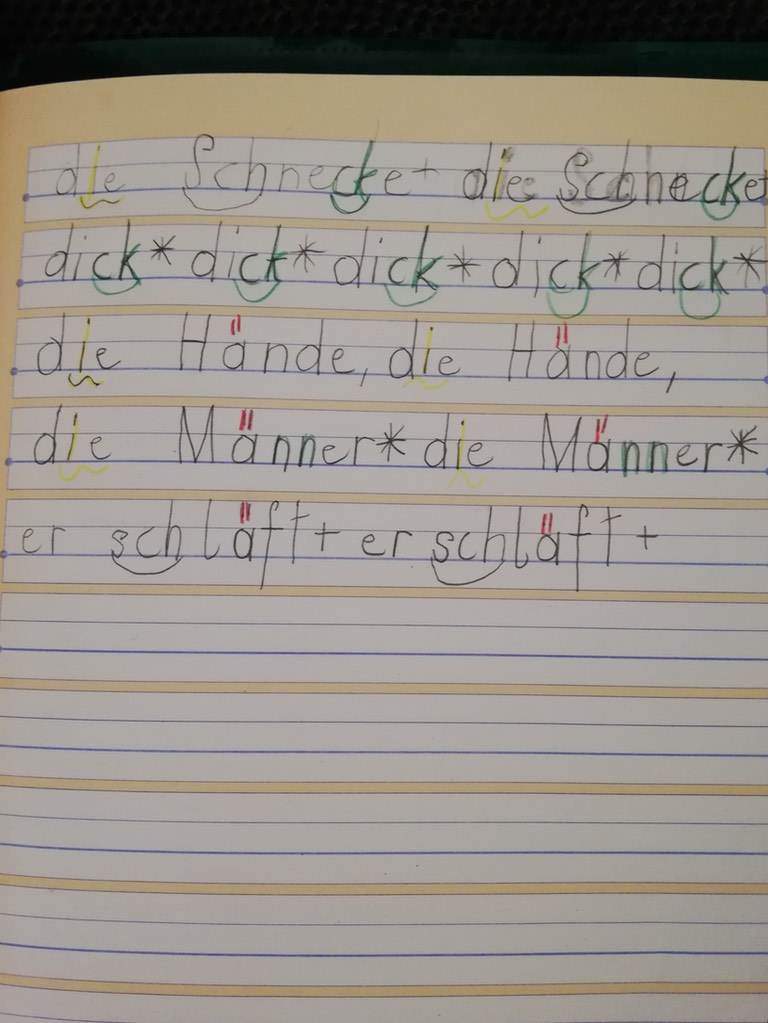 die Schnecke + die Schnecke +
dick * dick * dick * dick * dick *
die Hände, die Hände,
die Männer * die Männer *
er schläft + er schläft +